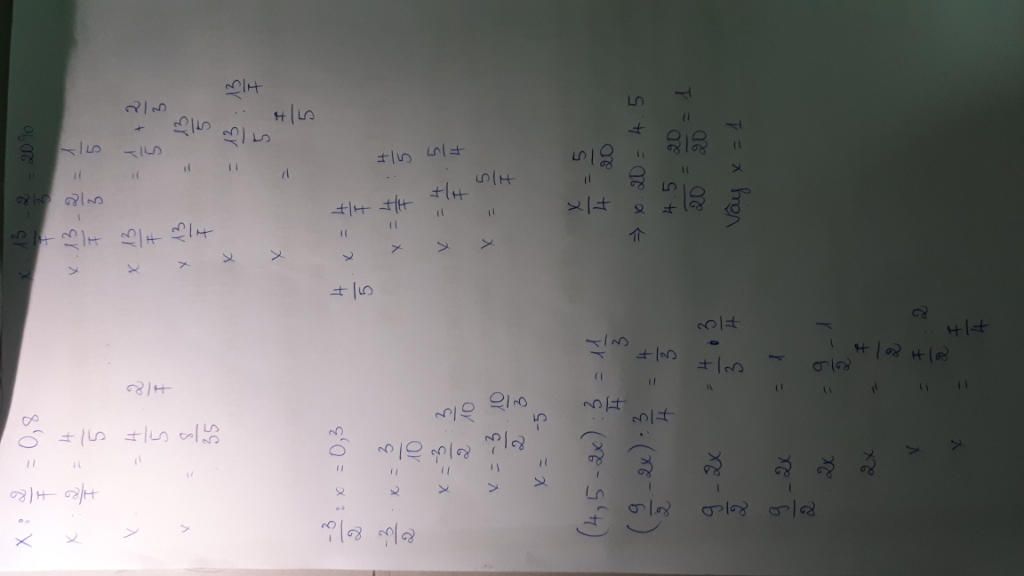 X : 2/7 = 0,8
x . 2/7 = 4/5
x = 4/5 . 2/7
x = 8/35
-3/2 : x = 0,3
-3/2 . x = 3/10
x = -3/2 : 3/10
x = -3/2 . 10/3
x = -5
(4,5 - 2x) : 3/4 = 1 1/3
(9/2 - 2x) : 3/4 = 4/3
9/2 - 2x = 4/3 . 3/4
9/2 - 2x = 1
2x = 9/2 - 1
2x = 7/2
x = 7/2 : 2
x = 7/4
x . 13/7 - 2/3 = 20%
x . 13/7 - 2/3 = 1/5
x . 13/7 = 1/5 + 2/3
x . 13/7 = 13/5
x = 13/5 : 13/7
x = 7/5
4/5 . x = 4/7
x = 4/7 : 4/5
x = 4/7 . 5/4
x = 5/7
x/4 = 5/20
⇒ x . 20 = 4 . 5
4.5/20 = 20/20 = 1
Vậy x = 1